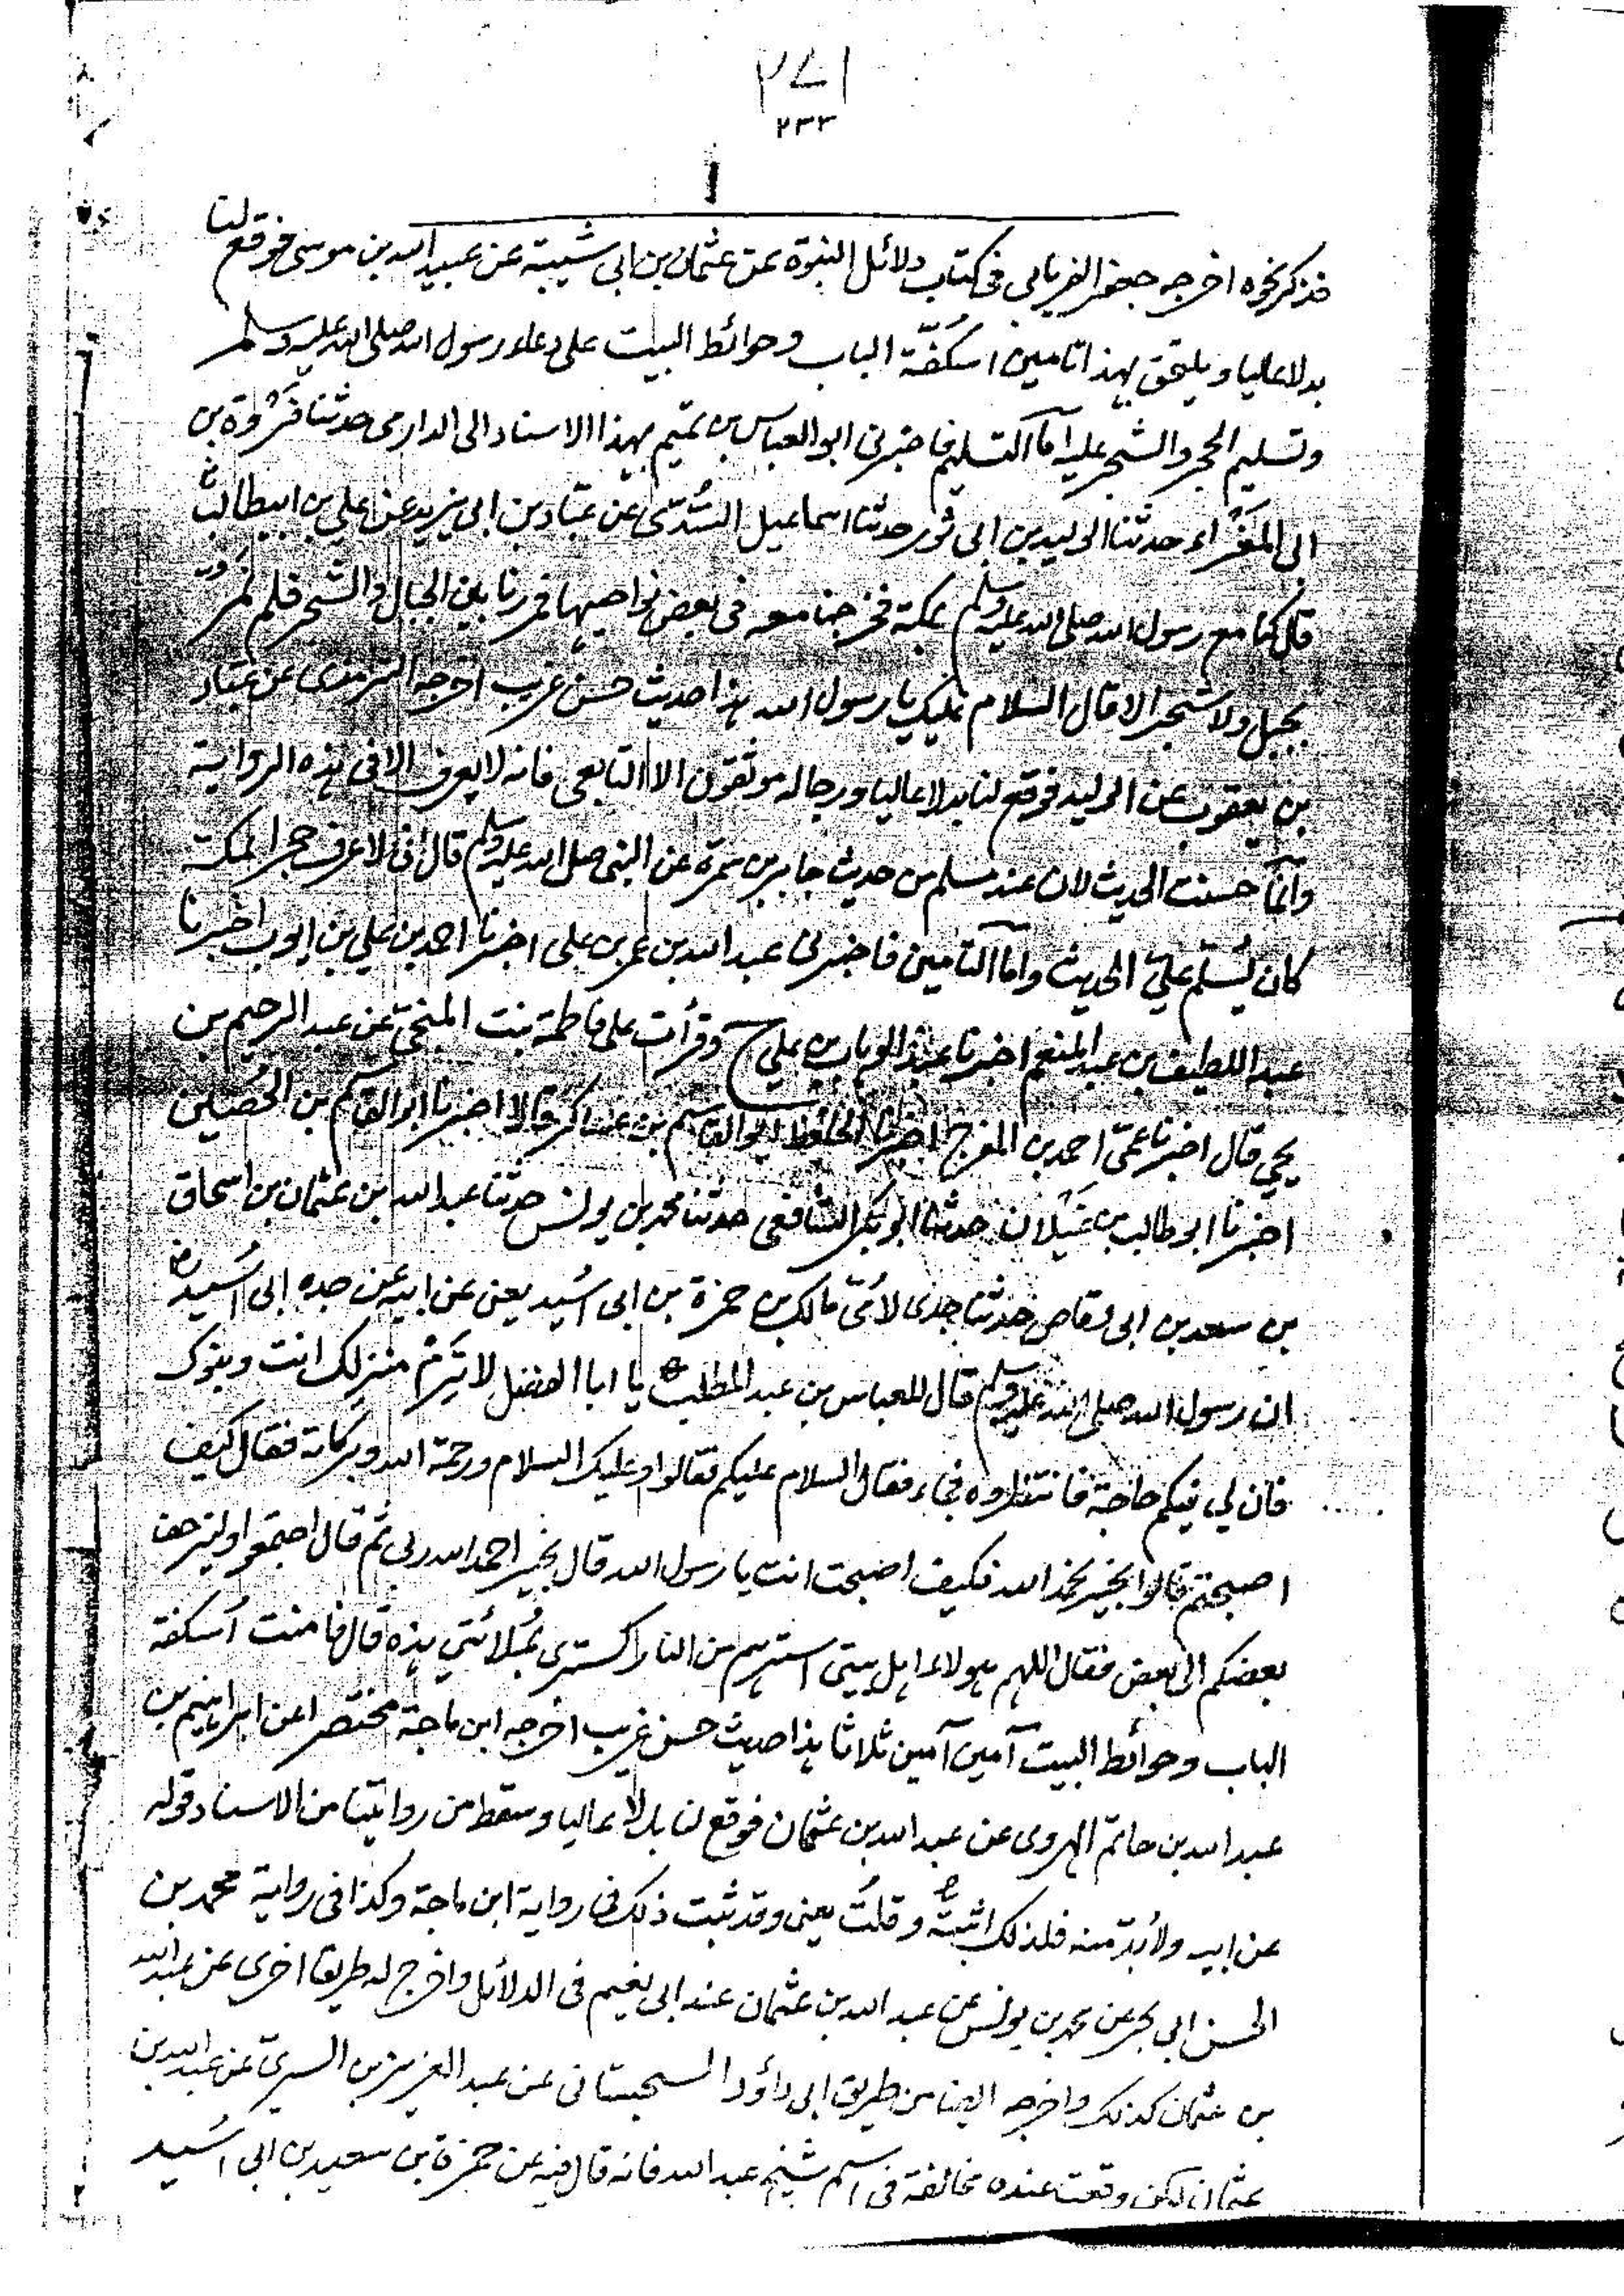 ٢٧١
٢٣٣
١
فذكر نحوه اخرجه جعفر الفريابي في كتاب دلائل النبوة عن عثمان بن ابى شيبة عن عبيد الله بن موسى فوقع لنا
بدلا عليا ويلتحق بهذا تامين اسكفّة الباب وحوائط البيت على دعاء رسول الله صلى الله عليه وسلم
وتسليم الحجر والشجر عليه امّا التسليم فاخبرنى ابو العباس بن تميم بهذا الاسناد الى الدارمى حدثنا فَرْوة بن
ابى المَغْراء حدثنا الوليد بن ابى ثور حدثنا اسماعيل السُّدّى عن عبّاد بن ابى يزيد عن علي بن ابيطالب
قال كنا مع رسول الله صلى الله عليه وسلم بمكة فخرجنا معه فى بعض نواحيها فمررنا بين الجبال والشجر فلم نمرّ
بجبل ولا شجر الا قال السلام عليك يا رسول الله هذا حديث حسن غريب اخرجه الترمذى عن عبّاد
بن يعقوب عن الوليد فوقع لنا بدلا عاليا ورجاله موثقون الا التابعى فانه لا يعرف الا فى هذه الرواية
وانّما حسنت الحديث لان عند مسلم من حديث جابر بن سمرة عن النبى صلى الله عليه وسلم قال انى لاعرف حجرا بمكة
كان يُسلّم عليّ الحديث وامّا التامين فاخبرنى عبد الله بن عمر بن على اخبرنا احمد بن علي بن ايوب اخبرنا
عبد اللطيف بن عبد المنعم اخبرنا عبد الوهاب بن علي ح وقرأت على فاطمة بنت المنجى عن عبد الرحيم بن
يحيى قال اخبرنا عمّى احمد بن المفرج اخبرنا الحافظ ابو القاسم بن عساكر قالا اخبرنا ابو القاسم بن الحُصَين
اخبرنا ابو طالب بن غَيلان حدثنا ابو بكر الشافعى حدثنا محمد بن يونس حدثنا عبد الله بن عثمان بن اسحاق
بن سعد بن ابى وقاص حدثنا جدى لامّى مالك بن حمزة بن ابى اسُيد يعنى عن ابيه عن جده ابى اسُيد
ان رسول الله صلى الله عليه وسلم قال للعباس بن عبد المطلب يا ابا الفضل لا تَرِمْ منزلك انت وبنوك
فان لي فيكم حاجة فانتظروه فجاء فقال السلام عليكم فقالوا وعليك السلام ورحمة الله وبركاته فقال كيف
اصبحتم قالوا بخير نحمد الله فكيف اصبحت انت يا رسول الله قال بخير احمد الله ربى ثم قال اجتمعوا وليزحف
بعضكم الى بعض فقال اللهم هولاء اهل بيتى استرهم من النار كسترى بمُلائتي هذه قال فامنت أسكفة
الباب وحوائط البيت آمين آمين ثلاثا هذا حديث حسن غريب اخرجه ابن ماجة مختصرا عن ابراهيم بن
عبد الله بن حاتم الهروى عن عبد الله بن عثمان فوقع لنا بدلا عاليا وسقط من روايتنا من الاسناد قوله
عن ابيه ولا بُدّ منه فلذلك اثبتُّه وقلتُ يعنى وقد ثبت ذلك فى رواية ابن ماجة وكذا فى رواية محمد بن
الحسن ابى بحر عن محمد بن يونس عن عبد الله بن عثمان عند ابى نعيم فى الدلائل واخرج له طريقا اخرى عن عبد الله
بن عثمان كذلك واخرجه ايضا من طريق ابى داؤد السجستانى عن عبد العزيز بن السرىّ عن عبد الله بن
عثمان لكن وقعت عنده مخالفة فى اسم شيخ عبد الله فانه قال فيه عن حمزة بن سعيد بن ابى اسَيد
٢